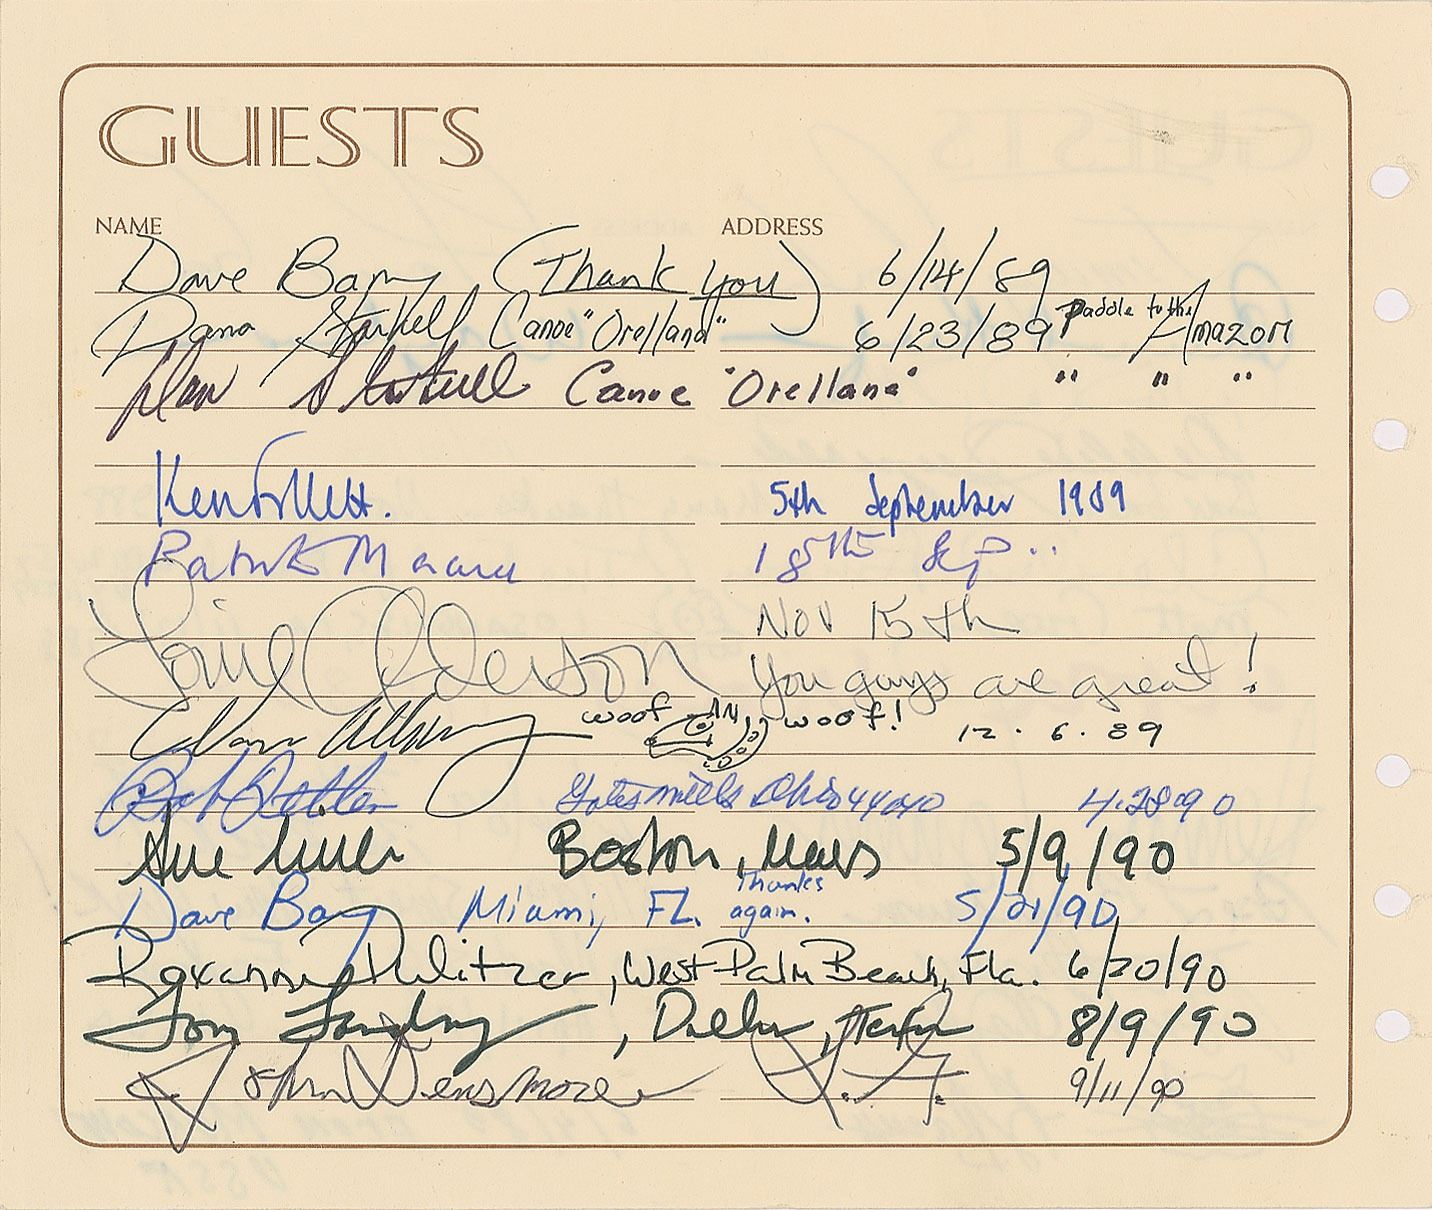 GUESTS
NAME ADDRESS
Dave Barry (Thank you) 6/14/89
Dana Starkell Canoe "Orellana" 6/23/89 Paddle to the Amazon
Don Starkell Canoe "Orellana" " " "
Ken Follett. 5th September 1989
18th Sep..
Anderson Nov 15th
You guys are great!
woof woof! 12.6.89
Bob Gates Mills Ohio 44040 4.28.90
Sue Miller Boston, Mass 5/9/90
Dave Barry Miami, FL. Thanks again. 5/21/90
Roxanne Pulitzer, West Palm Beach, Fla. 6/20/90
Tom Landry, Dallas, Texas 8/9/90
John Densmore 9/11/90